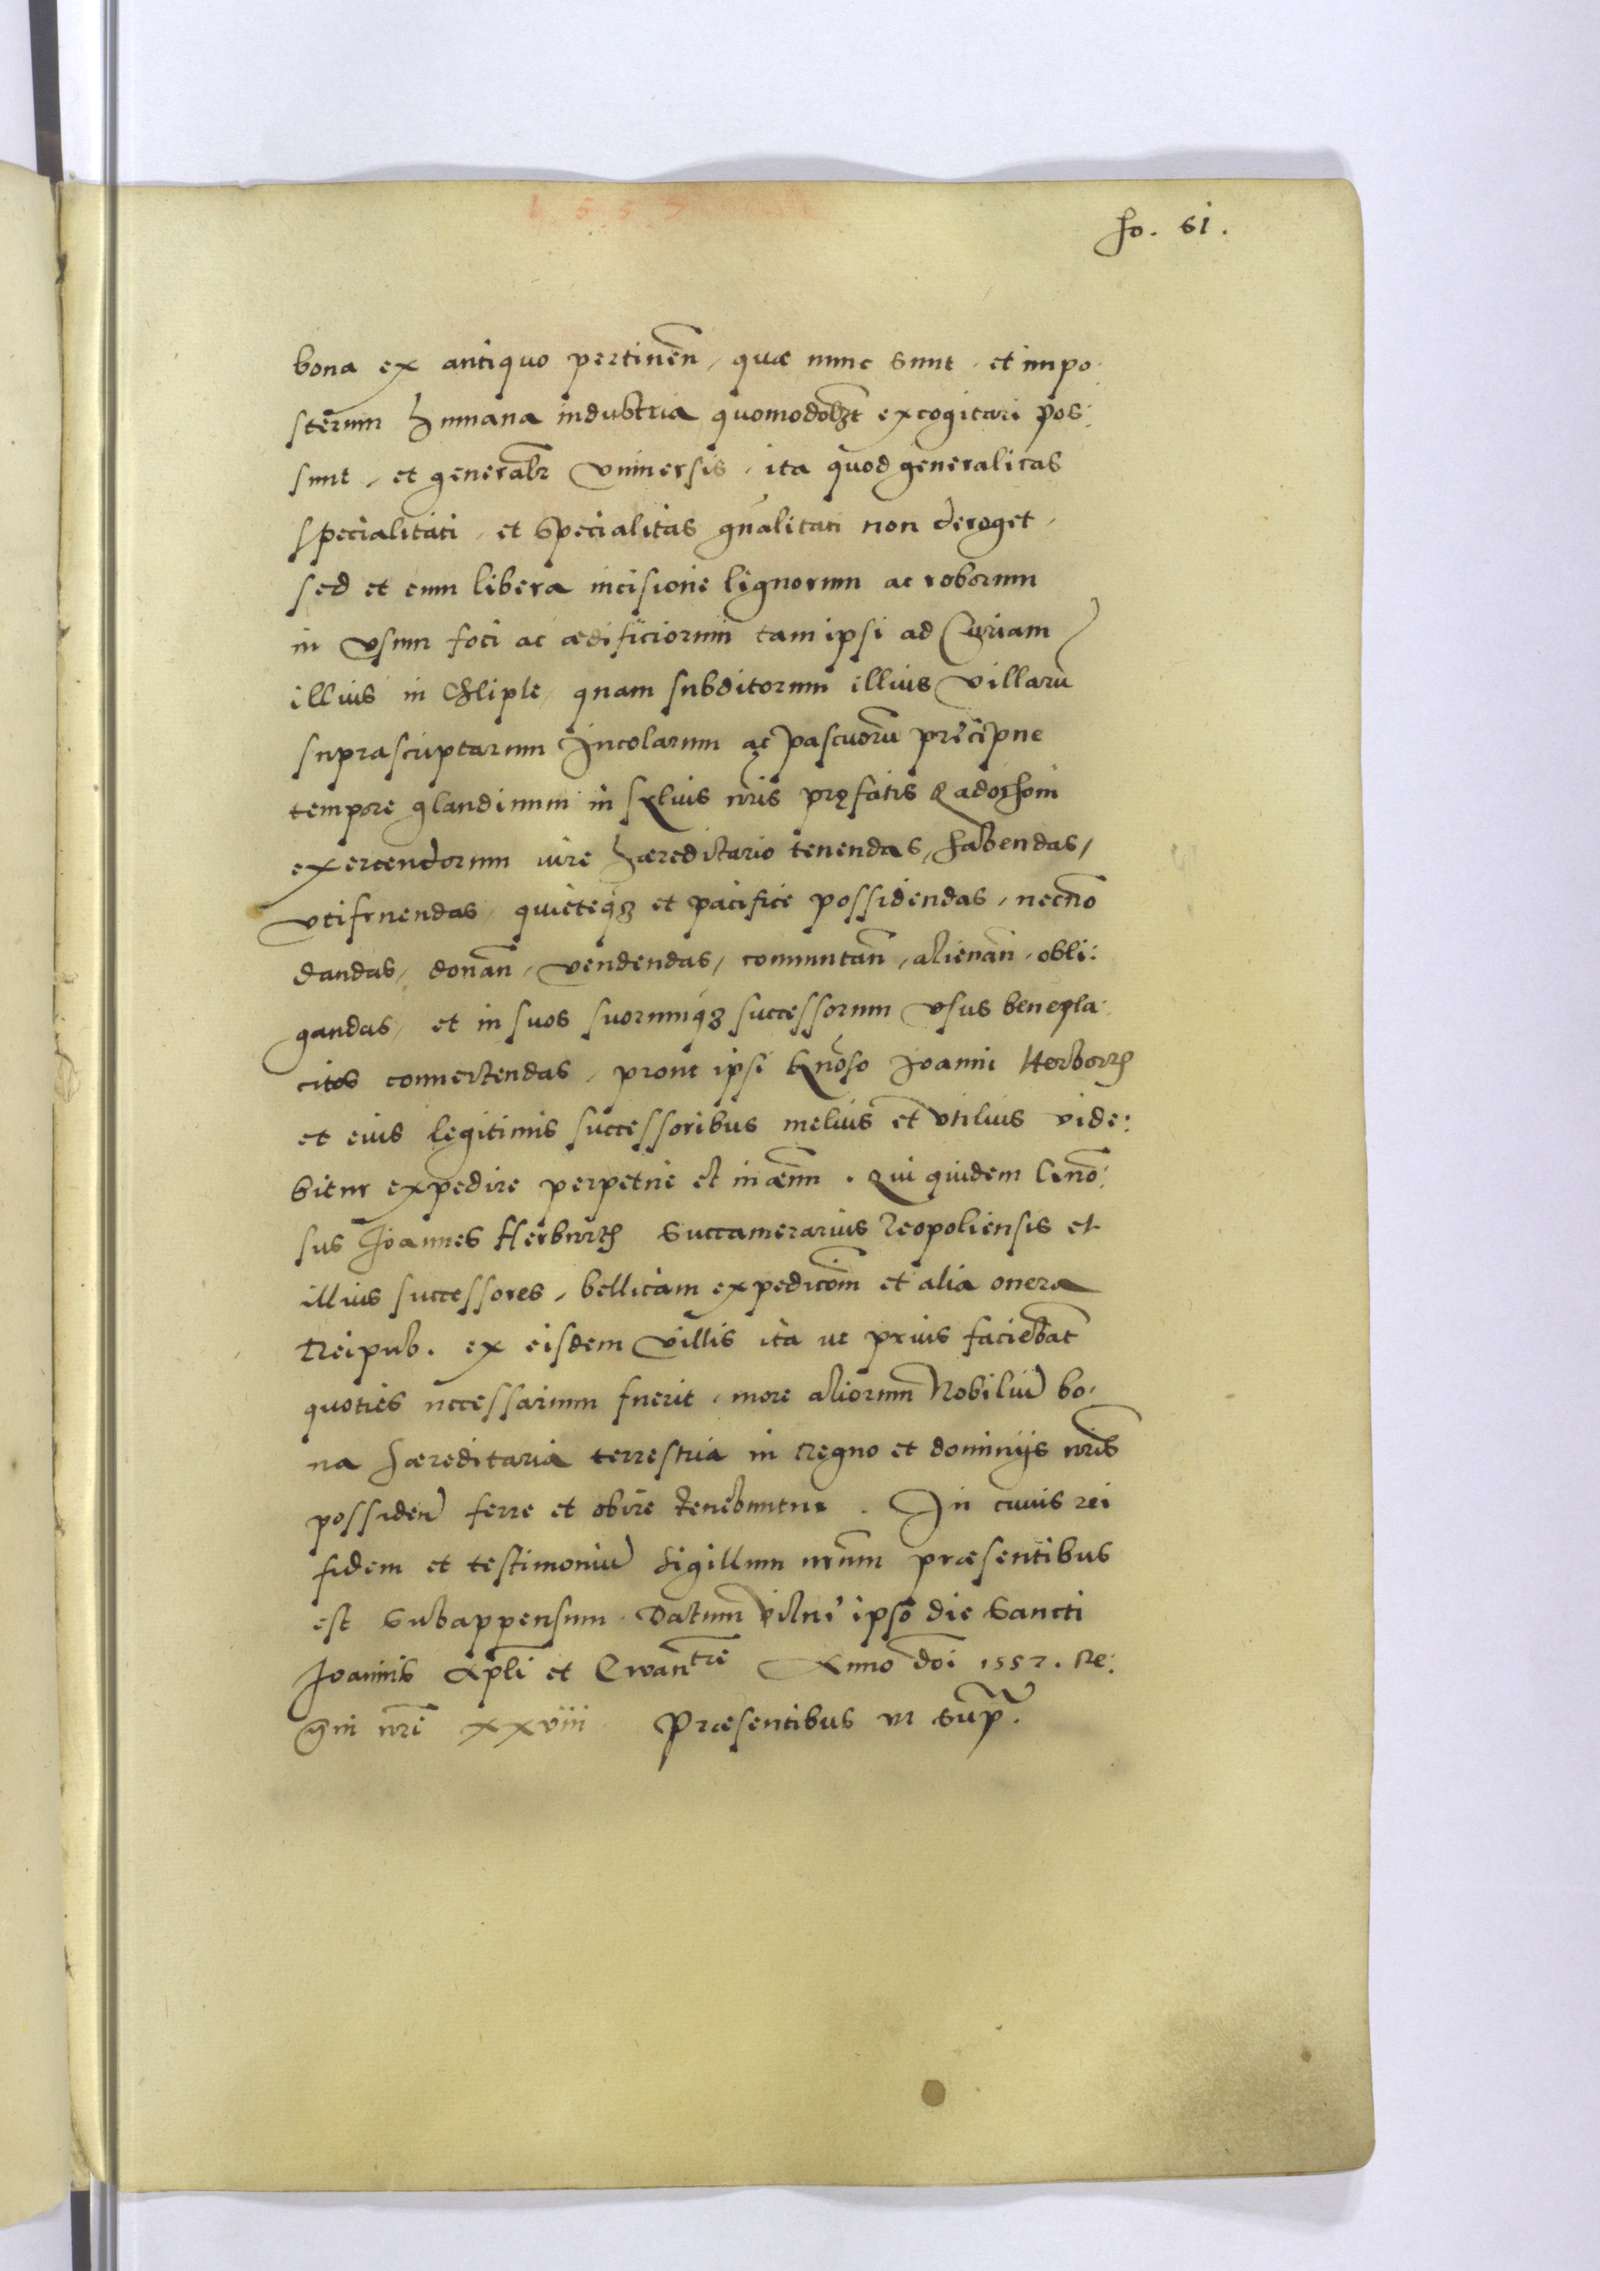 1 5 5 7
fo. 61.
bona ex antiquo pertineñ, quæ nunc sunt, et impo:
sterum humana industria quomodolȝt excogitari pos:
sunt, et generalr vniuersis, ita quod generalitas
specialitati, et specialitas gñalitati non deroget,
sed et cum libera incisione lignorum ac roborum
in vsum foci ac ædificiorum tam ipsi ad Curiam
illius in Chliple, quam subditorum illius villarū
suprascriptarum Incolarum ac pascuorū præcipue
tempore glandinum in syluis nris pręfatis
exercendorum iure hæreditario tenendas, habendas,
vtifruendas, quieteqȝ et pacifice possidendas, necnō
dandas, donañ, vendendas, commutañ, alienañ, obli:
gandas, et in suos suorumqȝ successorum vsus benepla:
citos conuertendas, prout ipsi Gnōso Joanni Herborth
et eius legitimis successoribus melius et vtilius vide:
bitur expedire perpetue et in æuum. Qui quidem Gnō:
sus Joannes Herburth Succamerarius Leopoliensis et
illius successores, bellicam expedicōm et alia onera
Reipub. ex eisdem villis ita ut prius faciebāt
quoties necessarium fuerit, more aliorum Nobiliū bo:
na hæreditaria terrestria in Regno et dominijs nris
possideñ ferre et obire tenebuntur. In cuius rei
fidem et testimoniū sigillum nrum præsentibus
est subappensum. Datum Vilnę ipso die Sancti
Joannis Apli et Ewantæ Anno Dōi 1557. Re:
gni nrē xxviii Præsentibus ut sup.